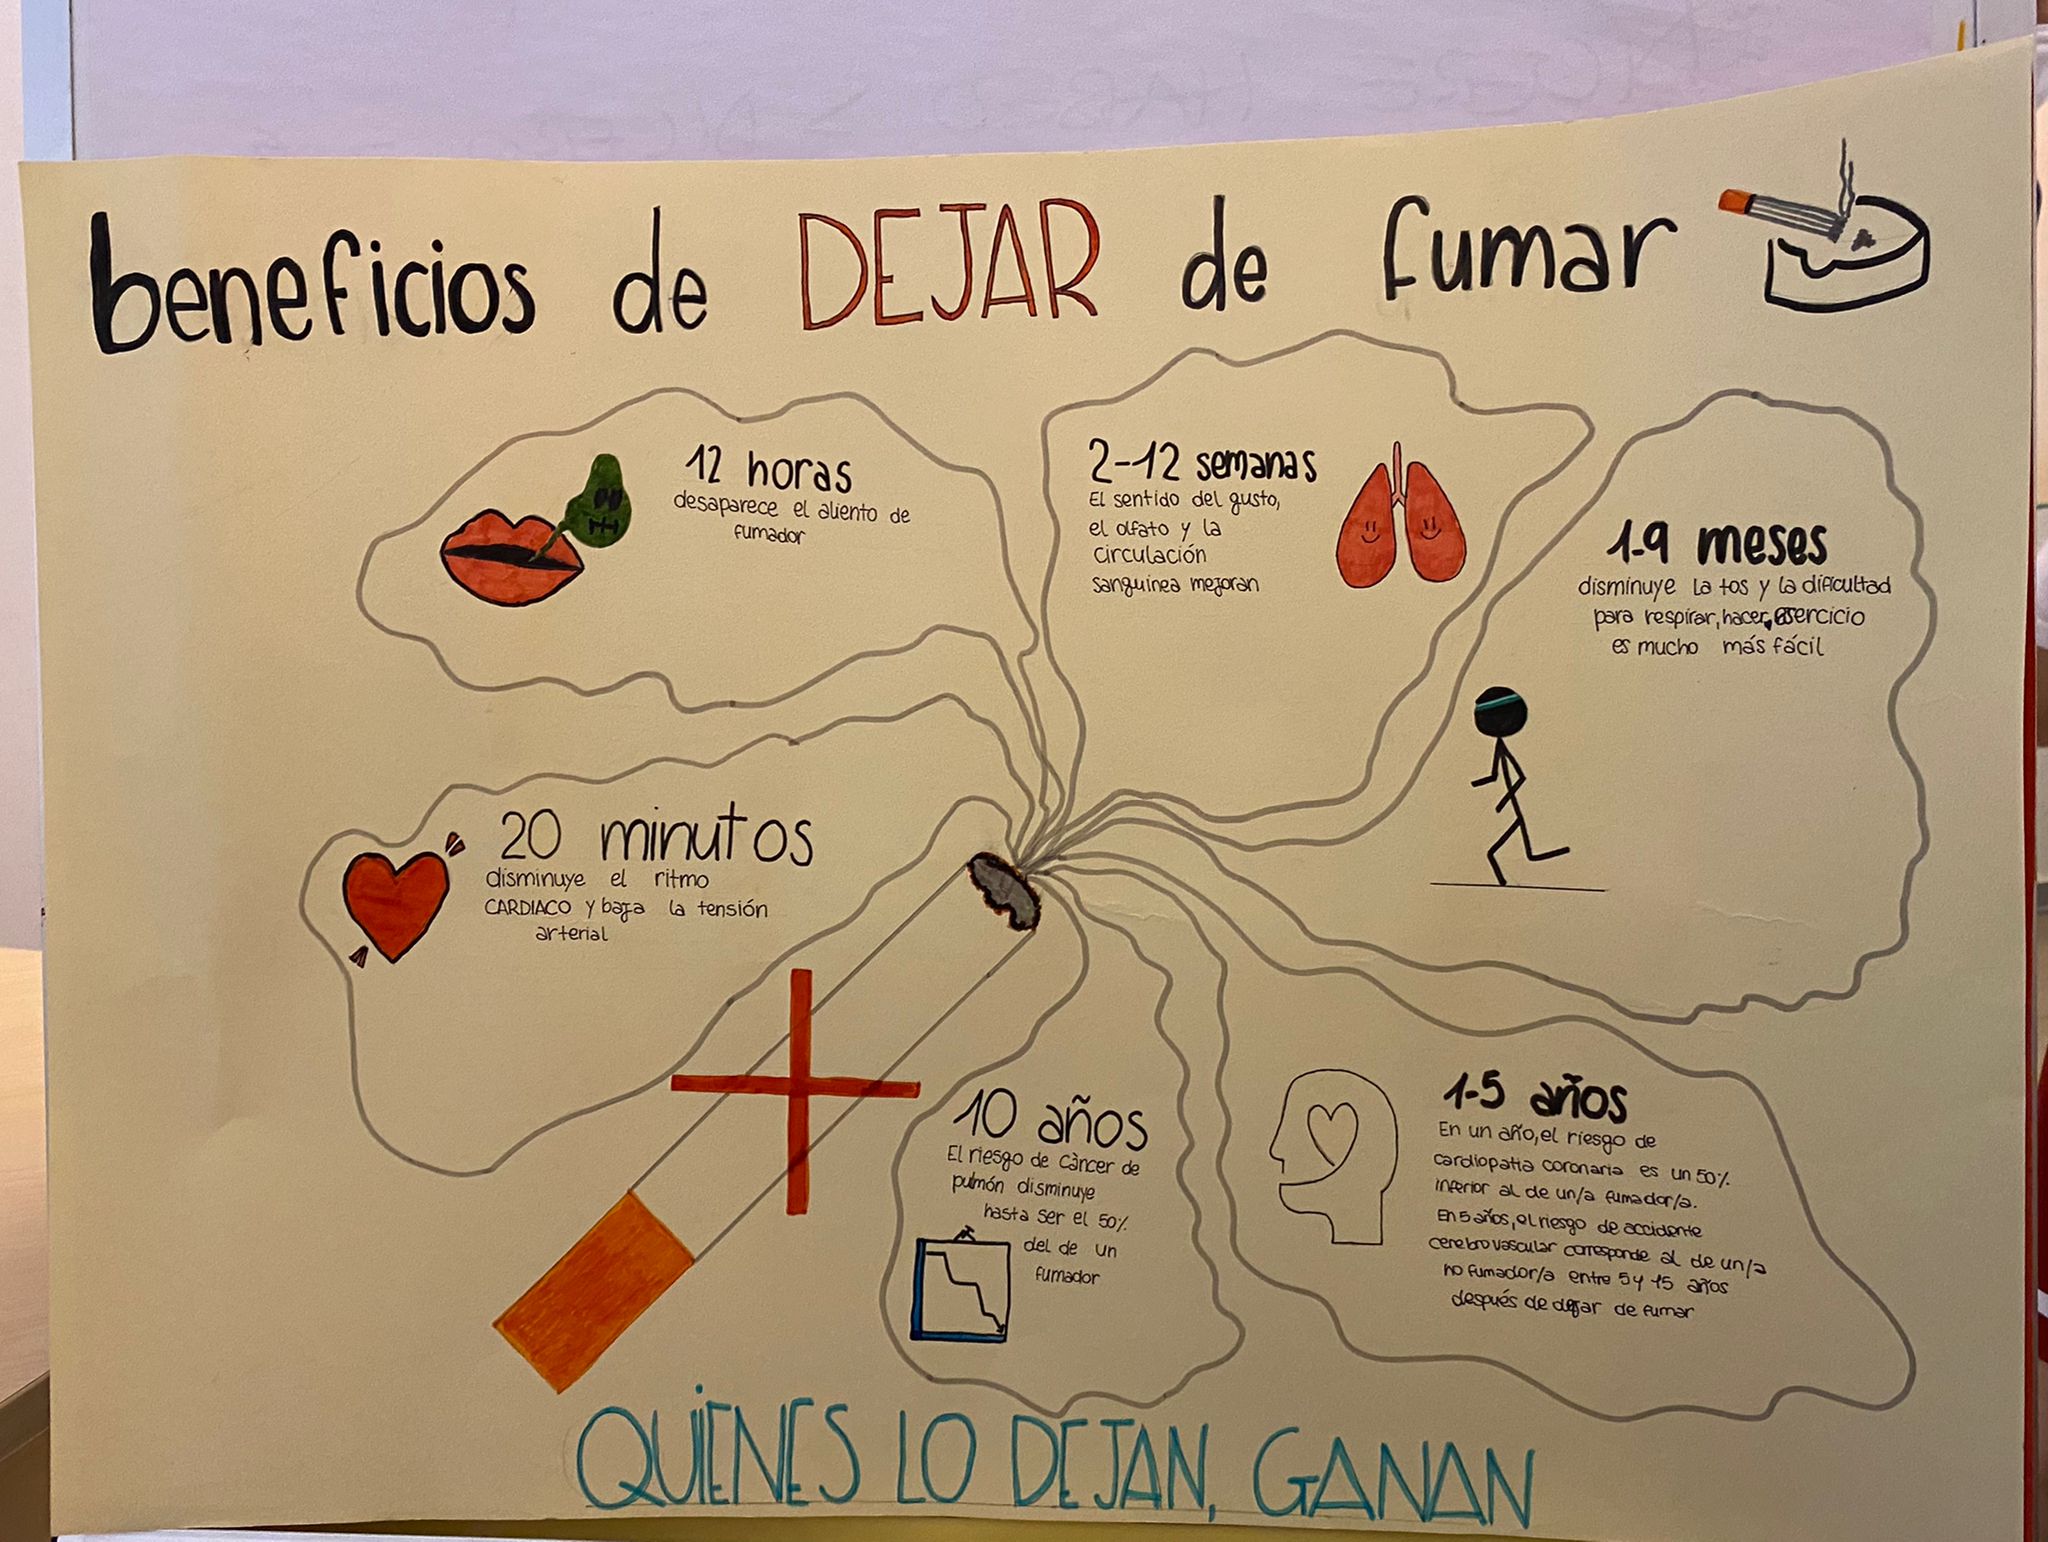 beneficios de DEJAR de fumar
12 horas
desaparece el aliento de
fumador
2-12 semanas
El sentido del gusto,
el olfato y la
circulación
sanguínea mejoran
1-9 meses
disminuye la tos y la dificultad
para respirar, hacer ejercicio
es mucho más fácil
20 minutos
disminuye el ritmo
CARDIACO y baja la tensión
arterial
10 años
El riesgo de càncer de
pulmón disminuye
hasta ser el 50%
del de un
fumador
1-5 años
En un año, el riesgo de
cardiopatia coronaria es un 50%
inferior al de un/a fumador/a.
En 5 años, el riesgo de accidente
cerebro vascular corresponde al de un/a
no fumador/a entre 5 y 15 años
después de dejar de fumar
QUIENES LO DEJAN, GANAN